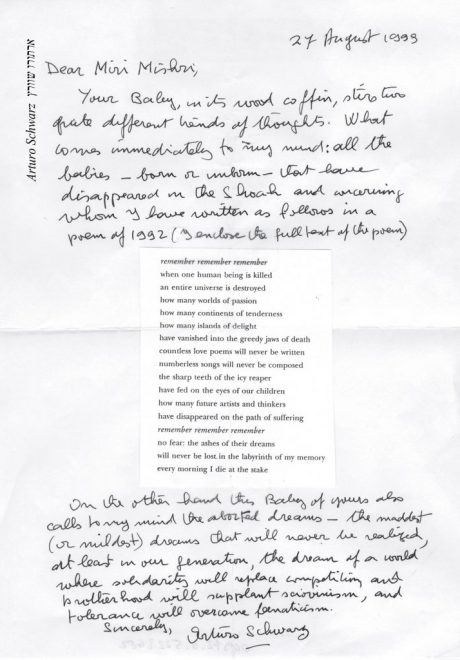 ארתורו שוורץ
Arturo Schwarz
27 August 1999
Dear Miri Mishri,
Your Baby, in its wood coffin, stirs two
quite different kinds of thoughts. What
comes immediately to my mind: all the
babies – born or unborn – that have
disappeared in the Shoah and concerning
whom I have written as follows in a
poem of 1992 (I enclose the full text of the poem)
remember remember remember
when one human being is killed
an entire universe is destroyed
how many worlds of passion
how many continents of tenderness
how many islands of delight
have vanished into the greedy jaws of death
countless love poems will never be written
numberless songs will never be composed
the sharp teeth of the icy reaper
have fed on the eyes of our children
how many future artists and thinkers
have disappeared on the path of suffering
remember remember remember
no fear: the ashes of their dreams
will never be lost in the labyrinth of my memory
every morning I die at the stake
On the other hand this Baby of yours also
calls to my mind the aborted dreams – the maddest
(or mildest) dreams that will never be realized,
at least in our generation, the dream of a world
where solidarity will replace competition and
brotherhood will supplant
and
tolerance will overcome fanaticism.
Sincerely, Arturo Schwarz